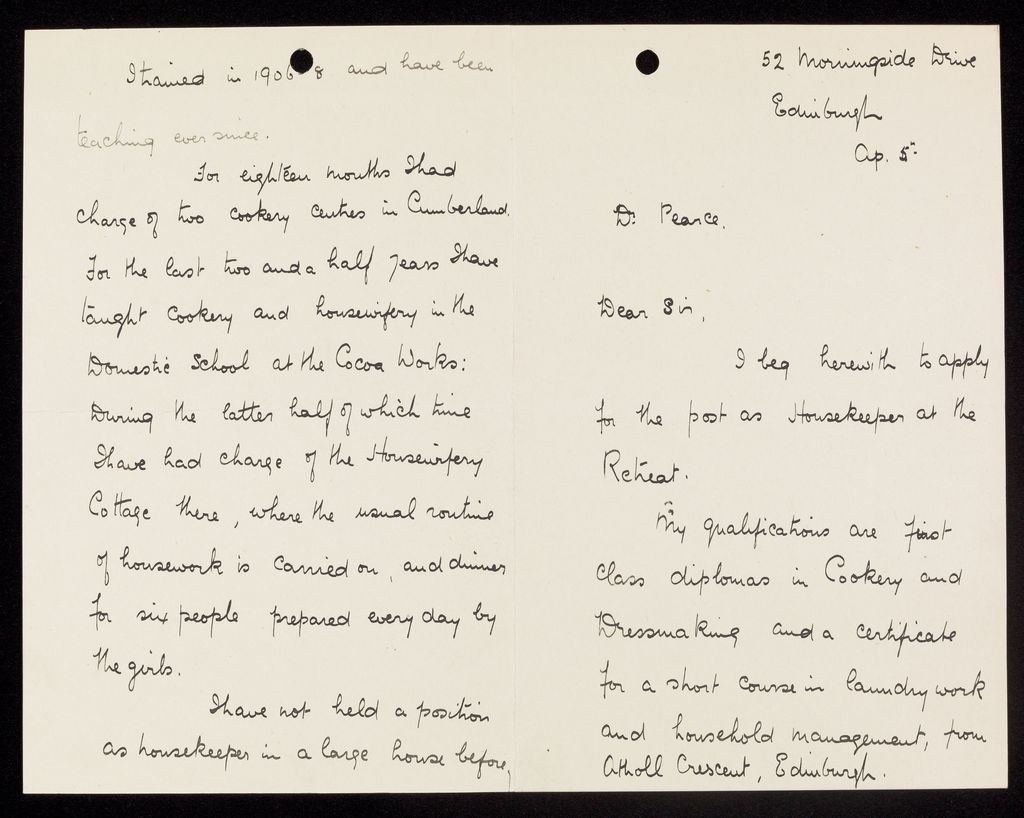 52 Morningside Drive
Edinburgh
Ap. 5th
Dr Pearce.
Dear Sir,
I beg herewith to apply
for the post as Housekeeper at the
Retreat.
My qualifications are first
class diplomas in Cookery and
Dressmaking and a certificate
for a short course in laundry work
and household management, from
Atholl Crescent, Edinburgh.
I trained in 1906-8 and have been
teaching ever since.
For eighteen months I had
charge of two cookery centres in Cumberland.
For the last two and a half years I have
taught cookery and housewifery in the
Domestic School at the Cocoa Works:
During the latter half of which time
I have had charge of the Housewifery
Cottage there, where the usual routine
of housework is carried on, and dinner
for six people prepared every day by
the girls.
I have not held a position
as housekeeper in a large house before,